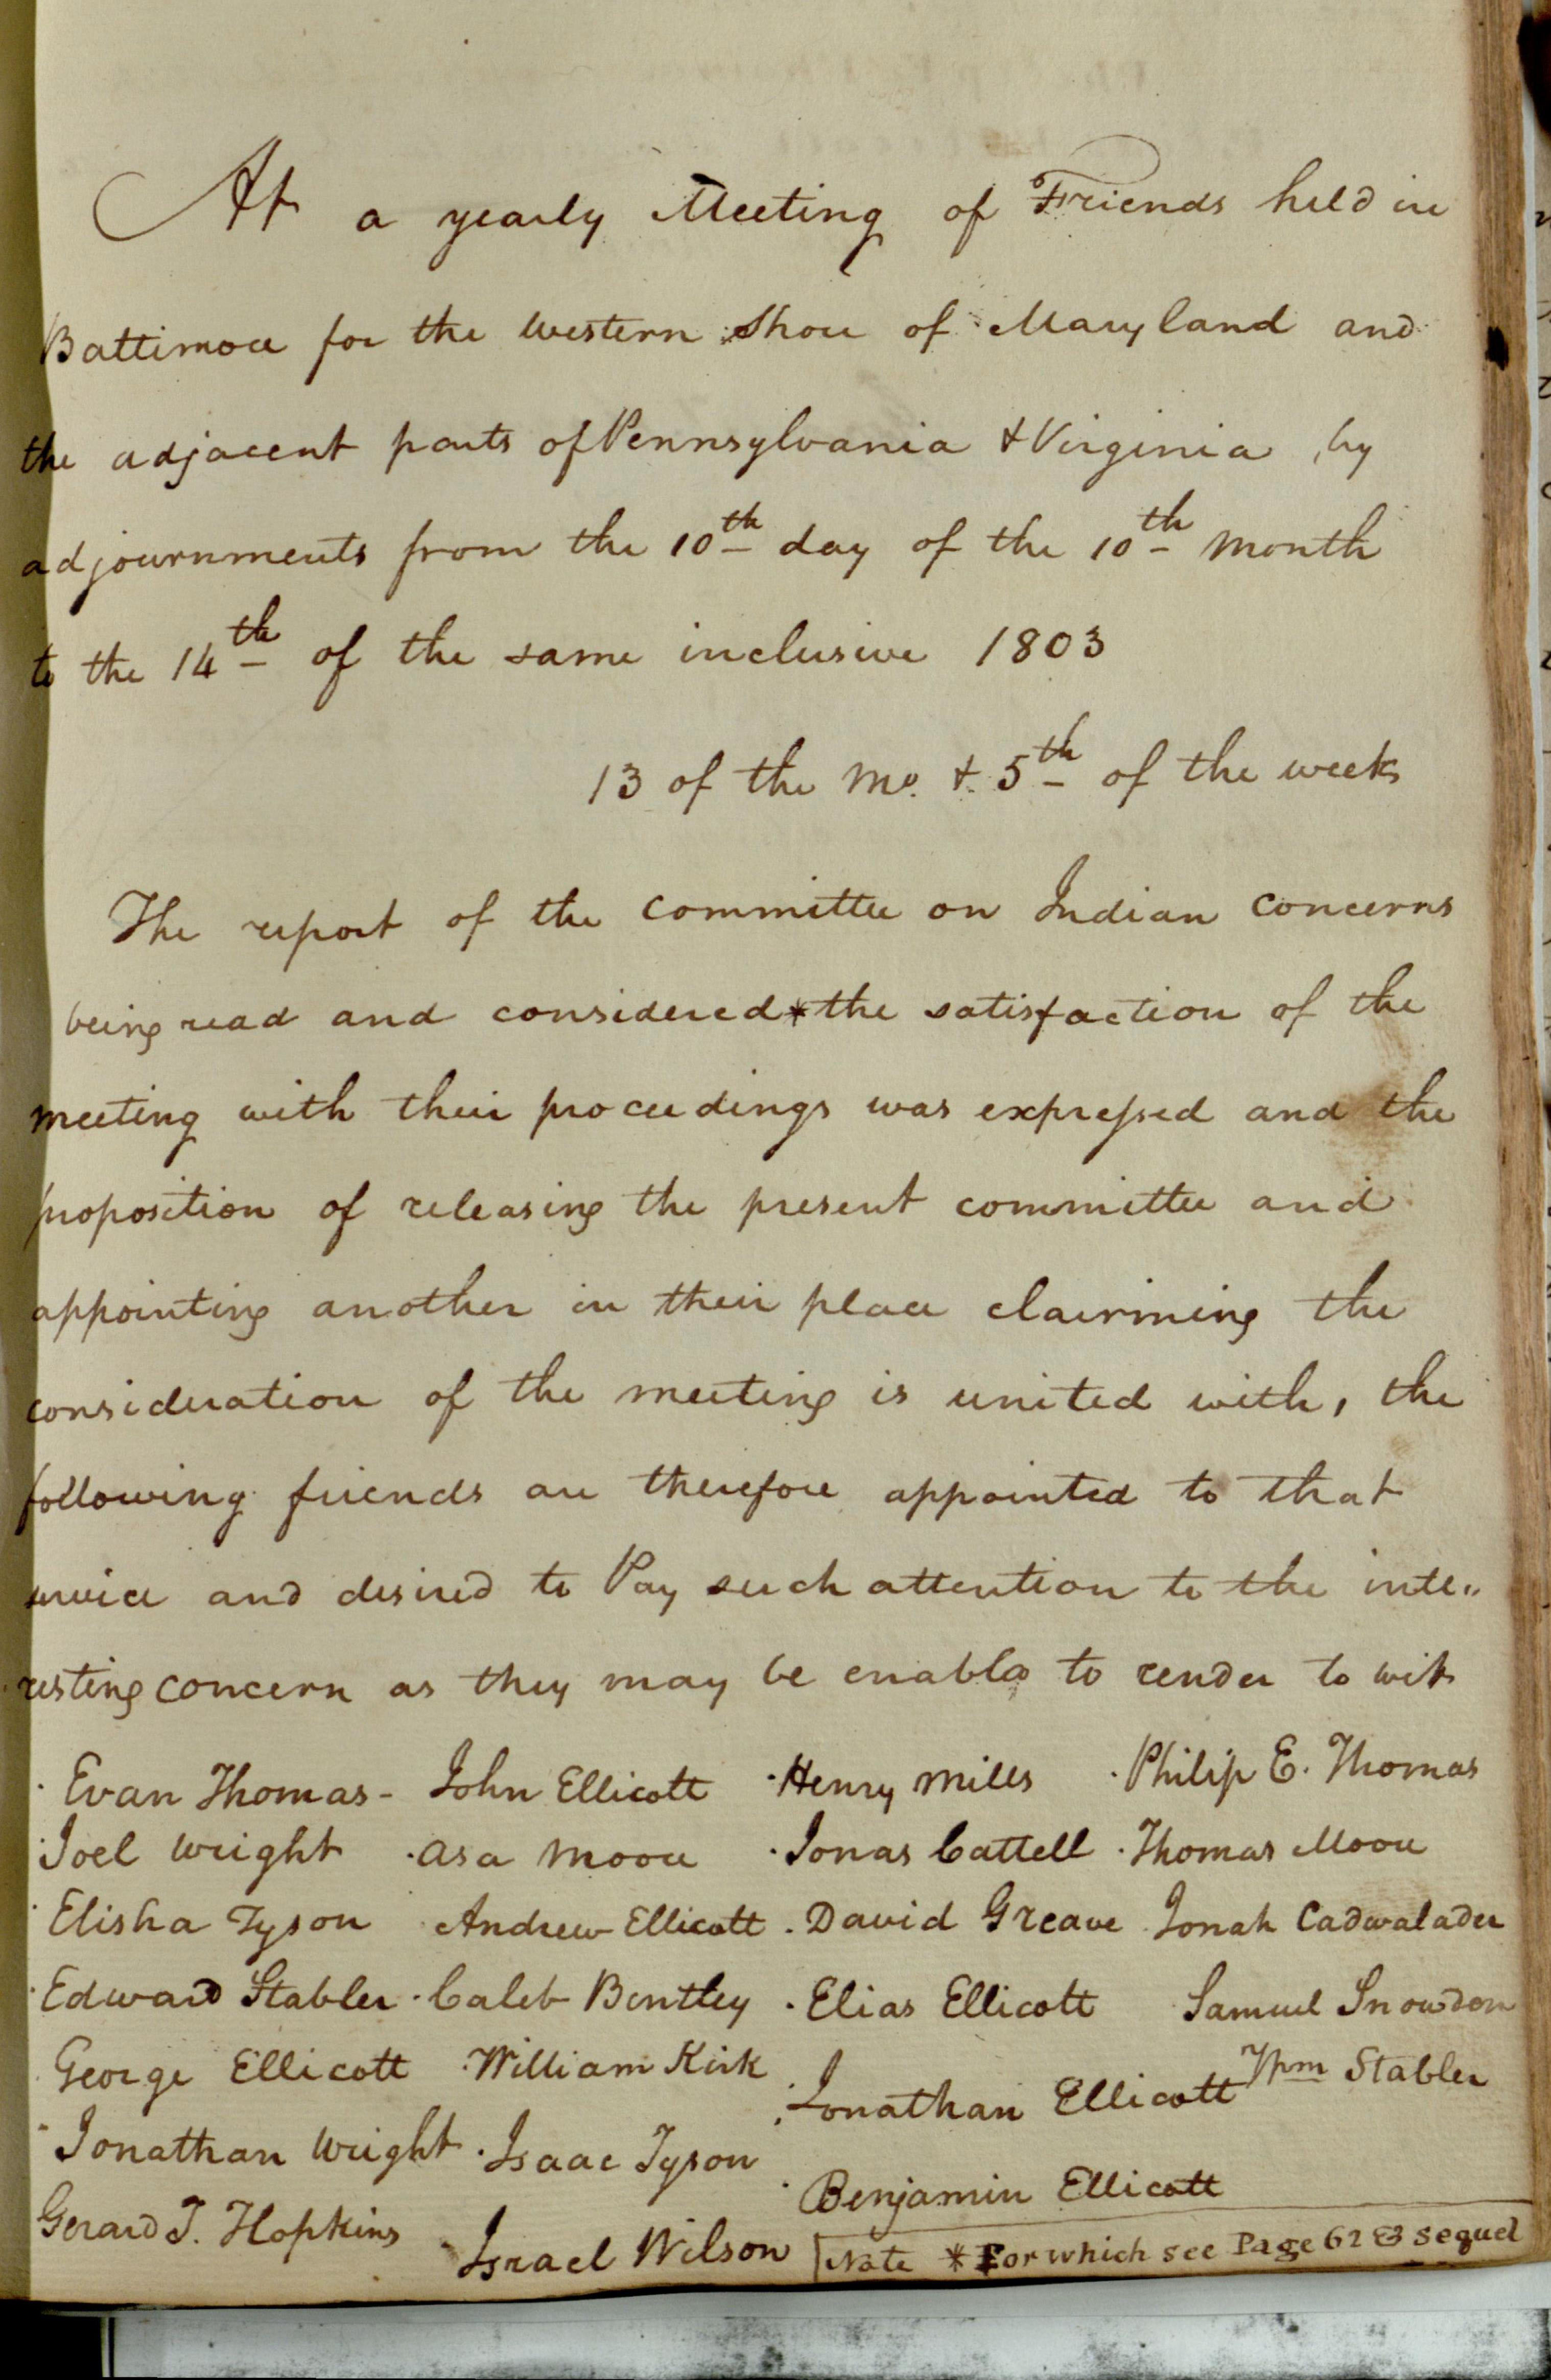 At a yearly Meeting of Friends held in
Baltimore for the Western Shore of Maryland and
the adjacent parts of Pennsylvania & Virginia, by
adjournments from the 10th day of the 10th month
to the 14th of the same inclusive 1803
13 of the mo. & 5th of the week
The report of the committee on Indian concerns
being read and considered * the satisfaction of the
meeting with their proceedings was expressed and the
proposition of releasing the present committee and
appointing another in their place claiming the
consideration of the meeting is united with, the
following friends are therefore appointed to that
service and desired to Pay such attention to the inte"
resting concern as they may be enabled to render to wit
Evan Thomas - John Ellicott Henry Mills Philip E. Thomas
Joel Wright Asa Moore Jonas Cattell Thomas Moore
Elisha Tyson Andrew Ellicott David Greave Jonah Cadwalader
Edward Stabler Caleb Bentley Elias Ellicott Samuel Snowden
George Ellicott William Kirk Jonathan Ellicott Wm Stabler
Jonathan Wright Isaac Tyson Benjamin Ellicott
Gerard T. Hopkins Israel Wilson
Note * For which see Page 62 & sequel